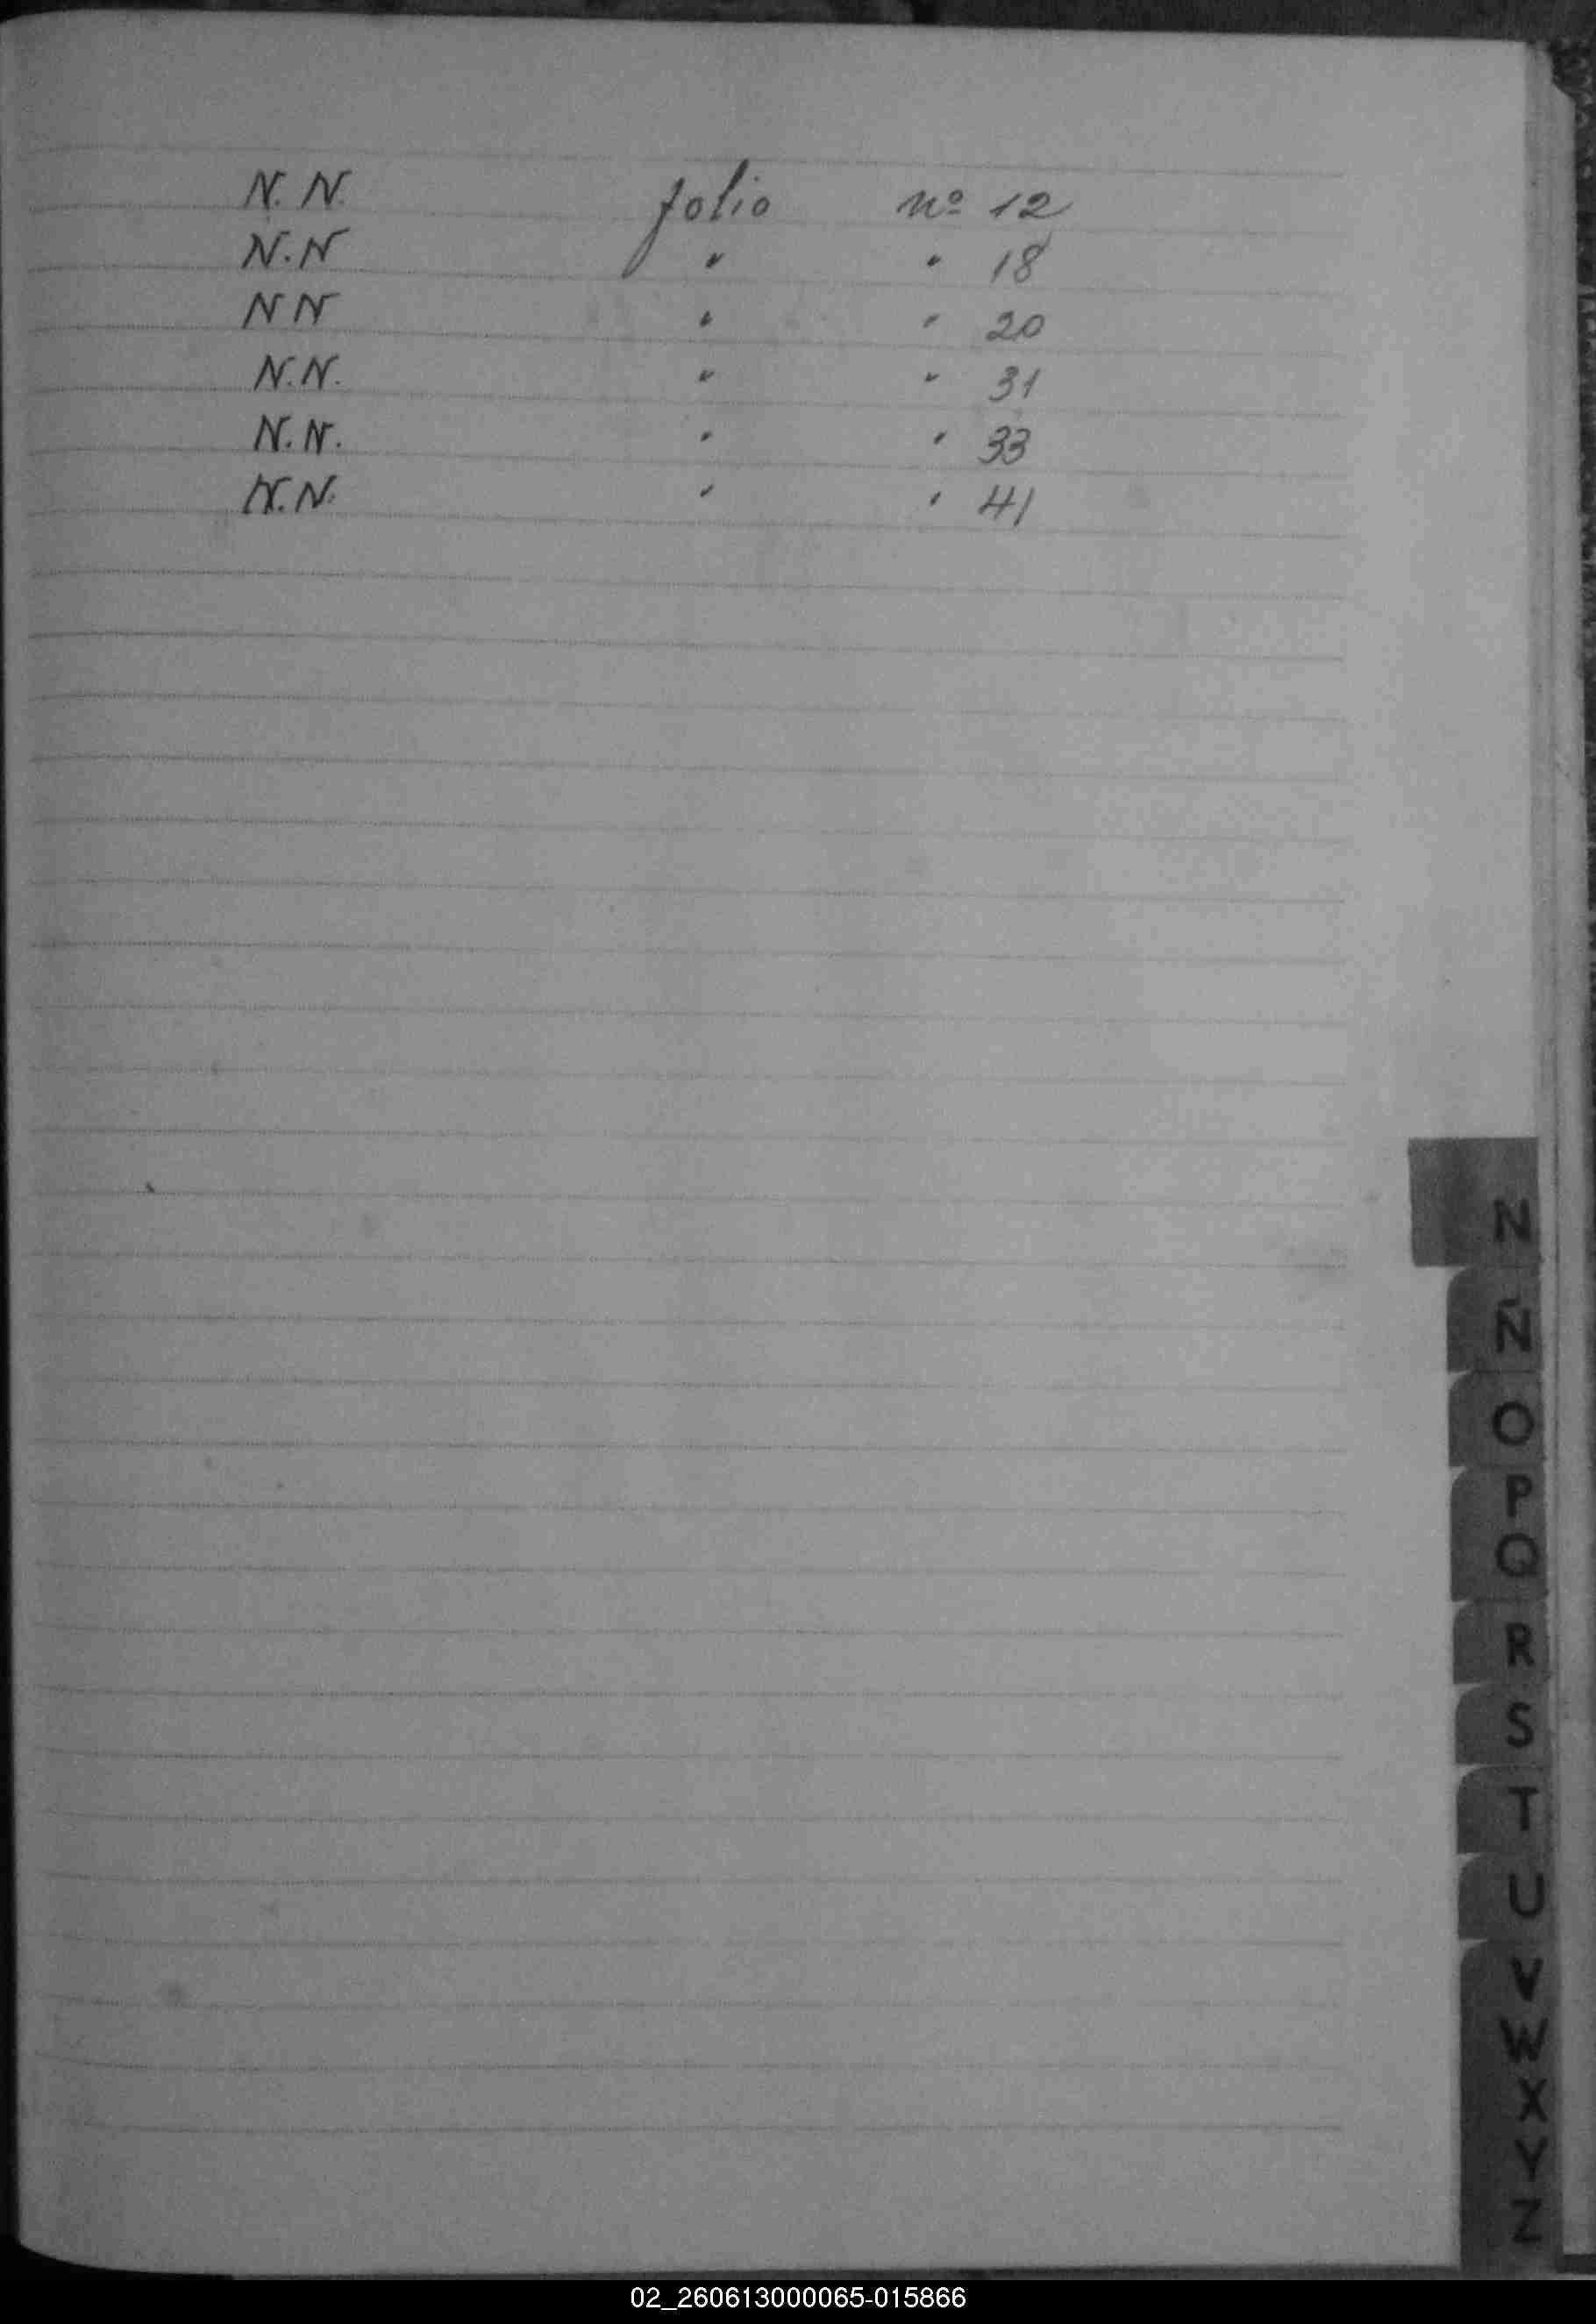 N. N. folio nº 12
N. N " " 18
N N " " 20
N. N. " " 31
N. N. " " 33
N. N. " " 41
N
Ñ
O
P
Q
R
S
T
U
V
W
X
Y
Z
02_260613000065-015866